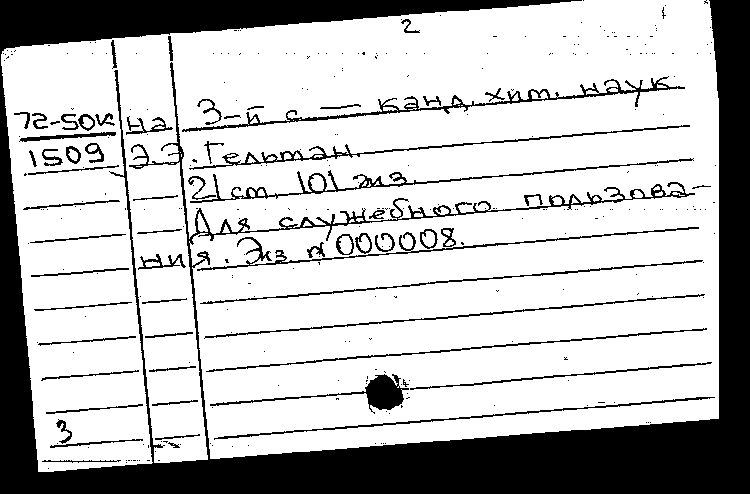 2
72-50К на 3-й с — канд. хим. наук
1509 Э.Э. Гельман.
21 ст. 101 экз.
Для служебного пользова-
ния. Экз № 000008.
3